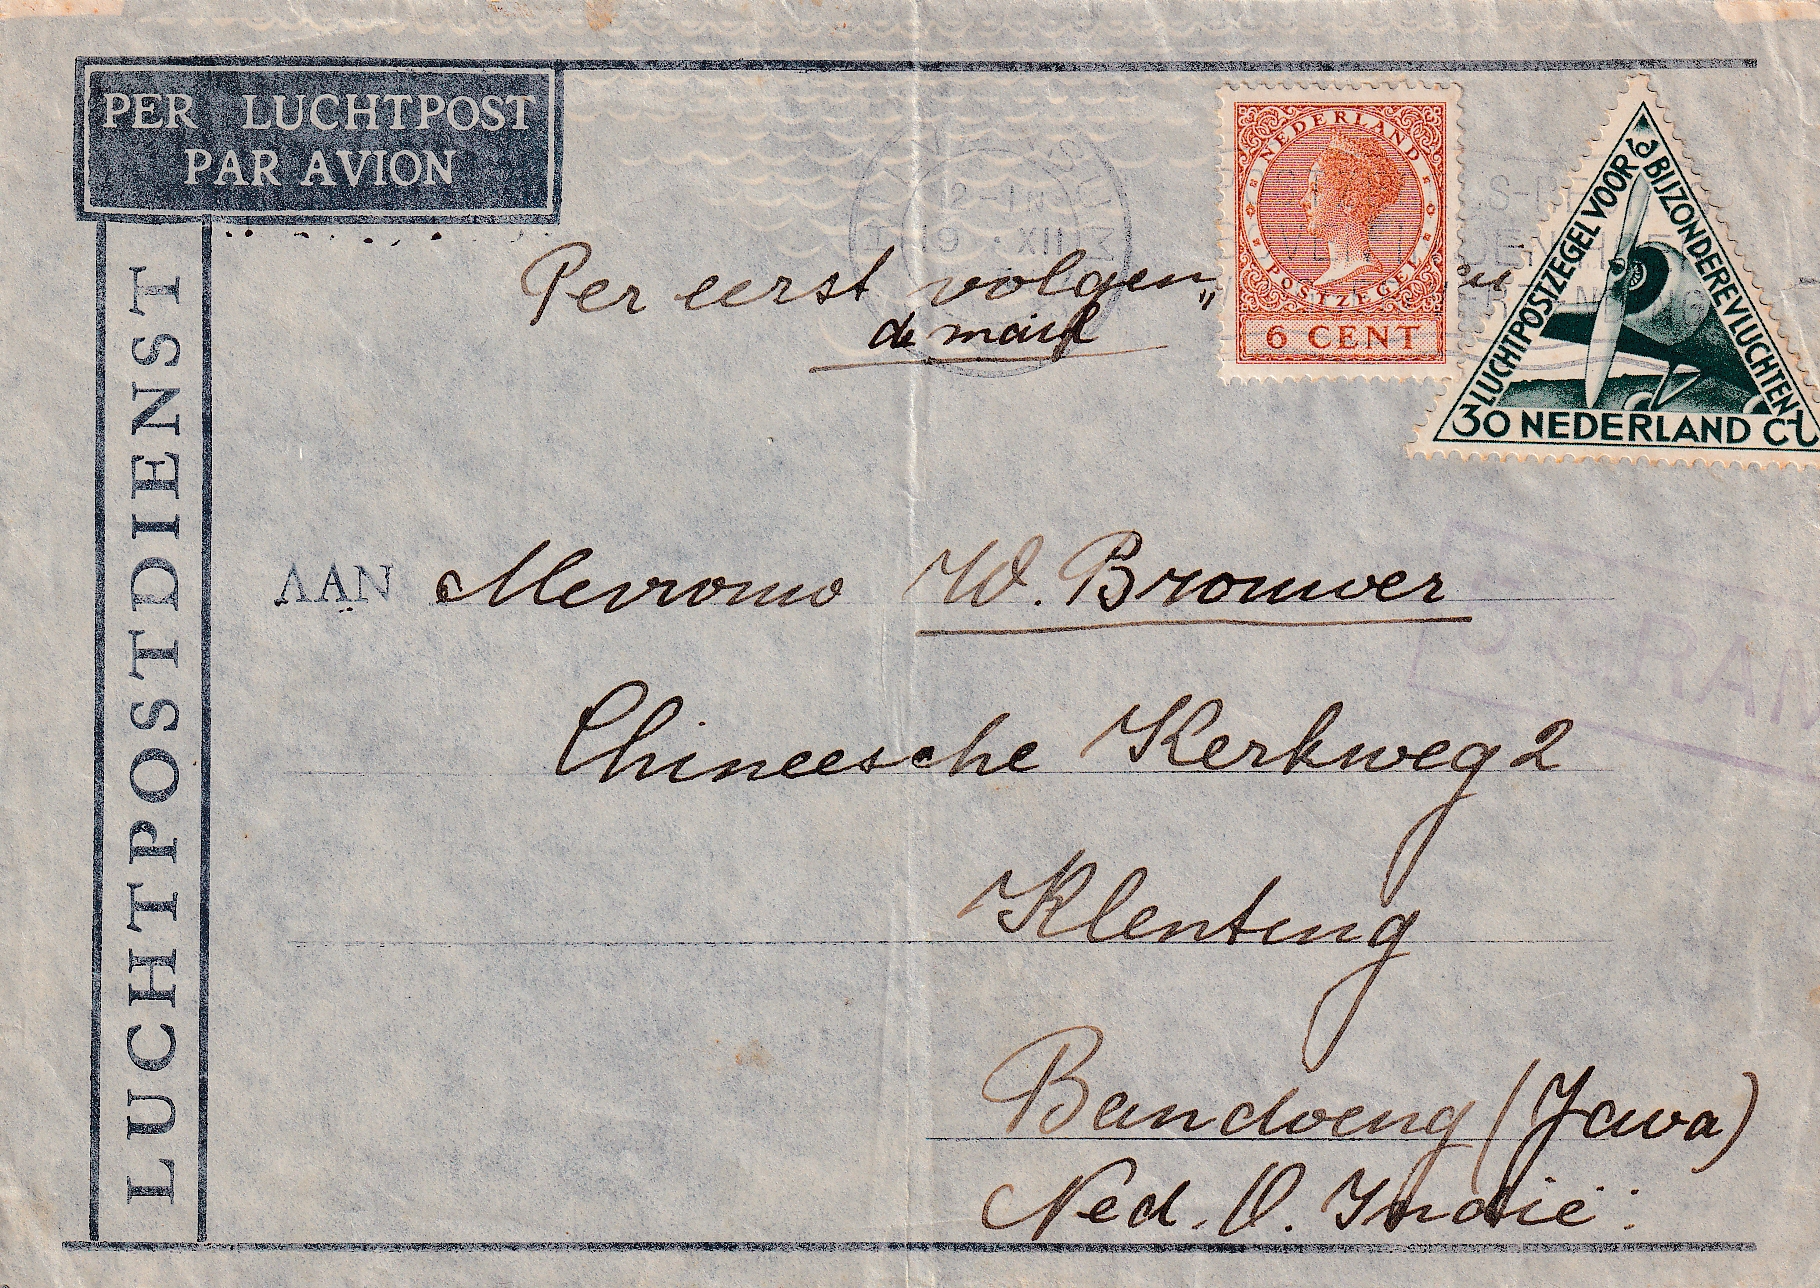 PER LUCHTPOST
PAR AVION
LUCHTPOSTDIENST
12-1N
19 XII
Per eerst volgen„
de mail
NEDERLAND
POSTZEGEL
6 CENT
LUCHTPOSTZEGEL VOOR
BIJZONDERE VLUCHTEN
30 NEDERLAND CT
5 GRAM
AAN Mevrouw W. Brouwer
Chineesche Kerkweg 2
Klenteng
Bandoeng (Java)
Ned. O. Indië.